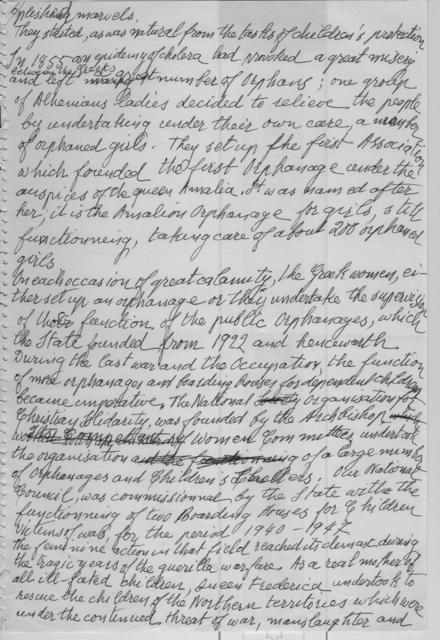 marvels.
They started, as was natural from the tasks of children's protection
In 1855 an epidemy of cholera had provoked a great misery
between the Greeks
and left great number of Orphans; one group
of Athenians ladies decided to relieve the people
by undertaking under their own care, a number
of orphaned girls. They set up the first Association
which founded the first Orphanage under the
auspices of the queen Amalia. It was named after
her, it is the Amalion Orphanage for girls, still
functionneing, taking care of about 200 orphaned
girls
On each occasion of great calamity, the Greek women, ei-
ther set up an orphanage or they undertake the supervision
of the function of the public Orphanages, which
the State founded from 1922 and henceworth.
During the last war and the Occupation, the function
of more orphanages and boarding houses for dependent children
became imperative. The National organisation for
Christian Solidarity, was founded by the Archbishop
Women Committees undertook
the organisation of a large number
of Orphanages and Children's Shellters. Our National
Council, was commissionned by the State with the
functionning of two Boarding Houses for Children
victims of war, for the period 1940-1947
The feminine action in that field reached its climax during
the tragic years of the guerilla warfare. As a real mother of
all ill fated children, queen Frederica undertook to
rescue the children of the Northern territories which were
under the continued threat of war, manslaughter and